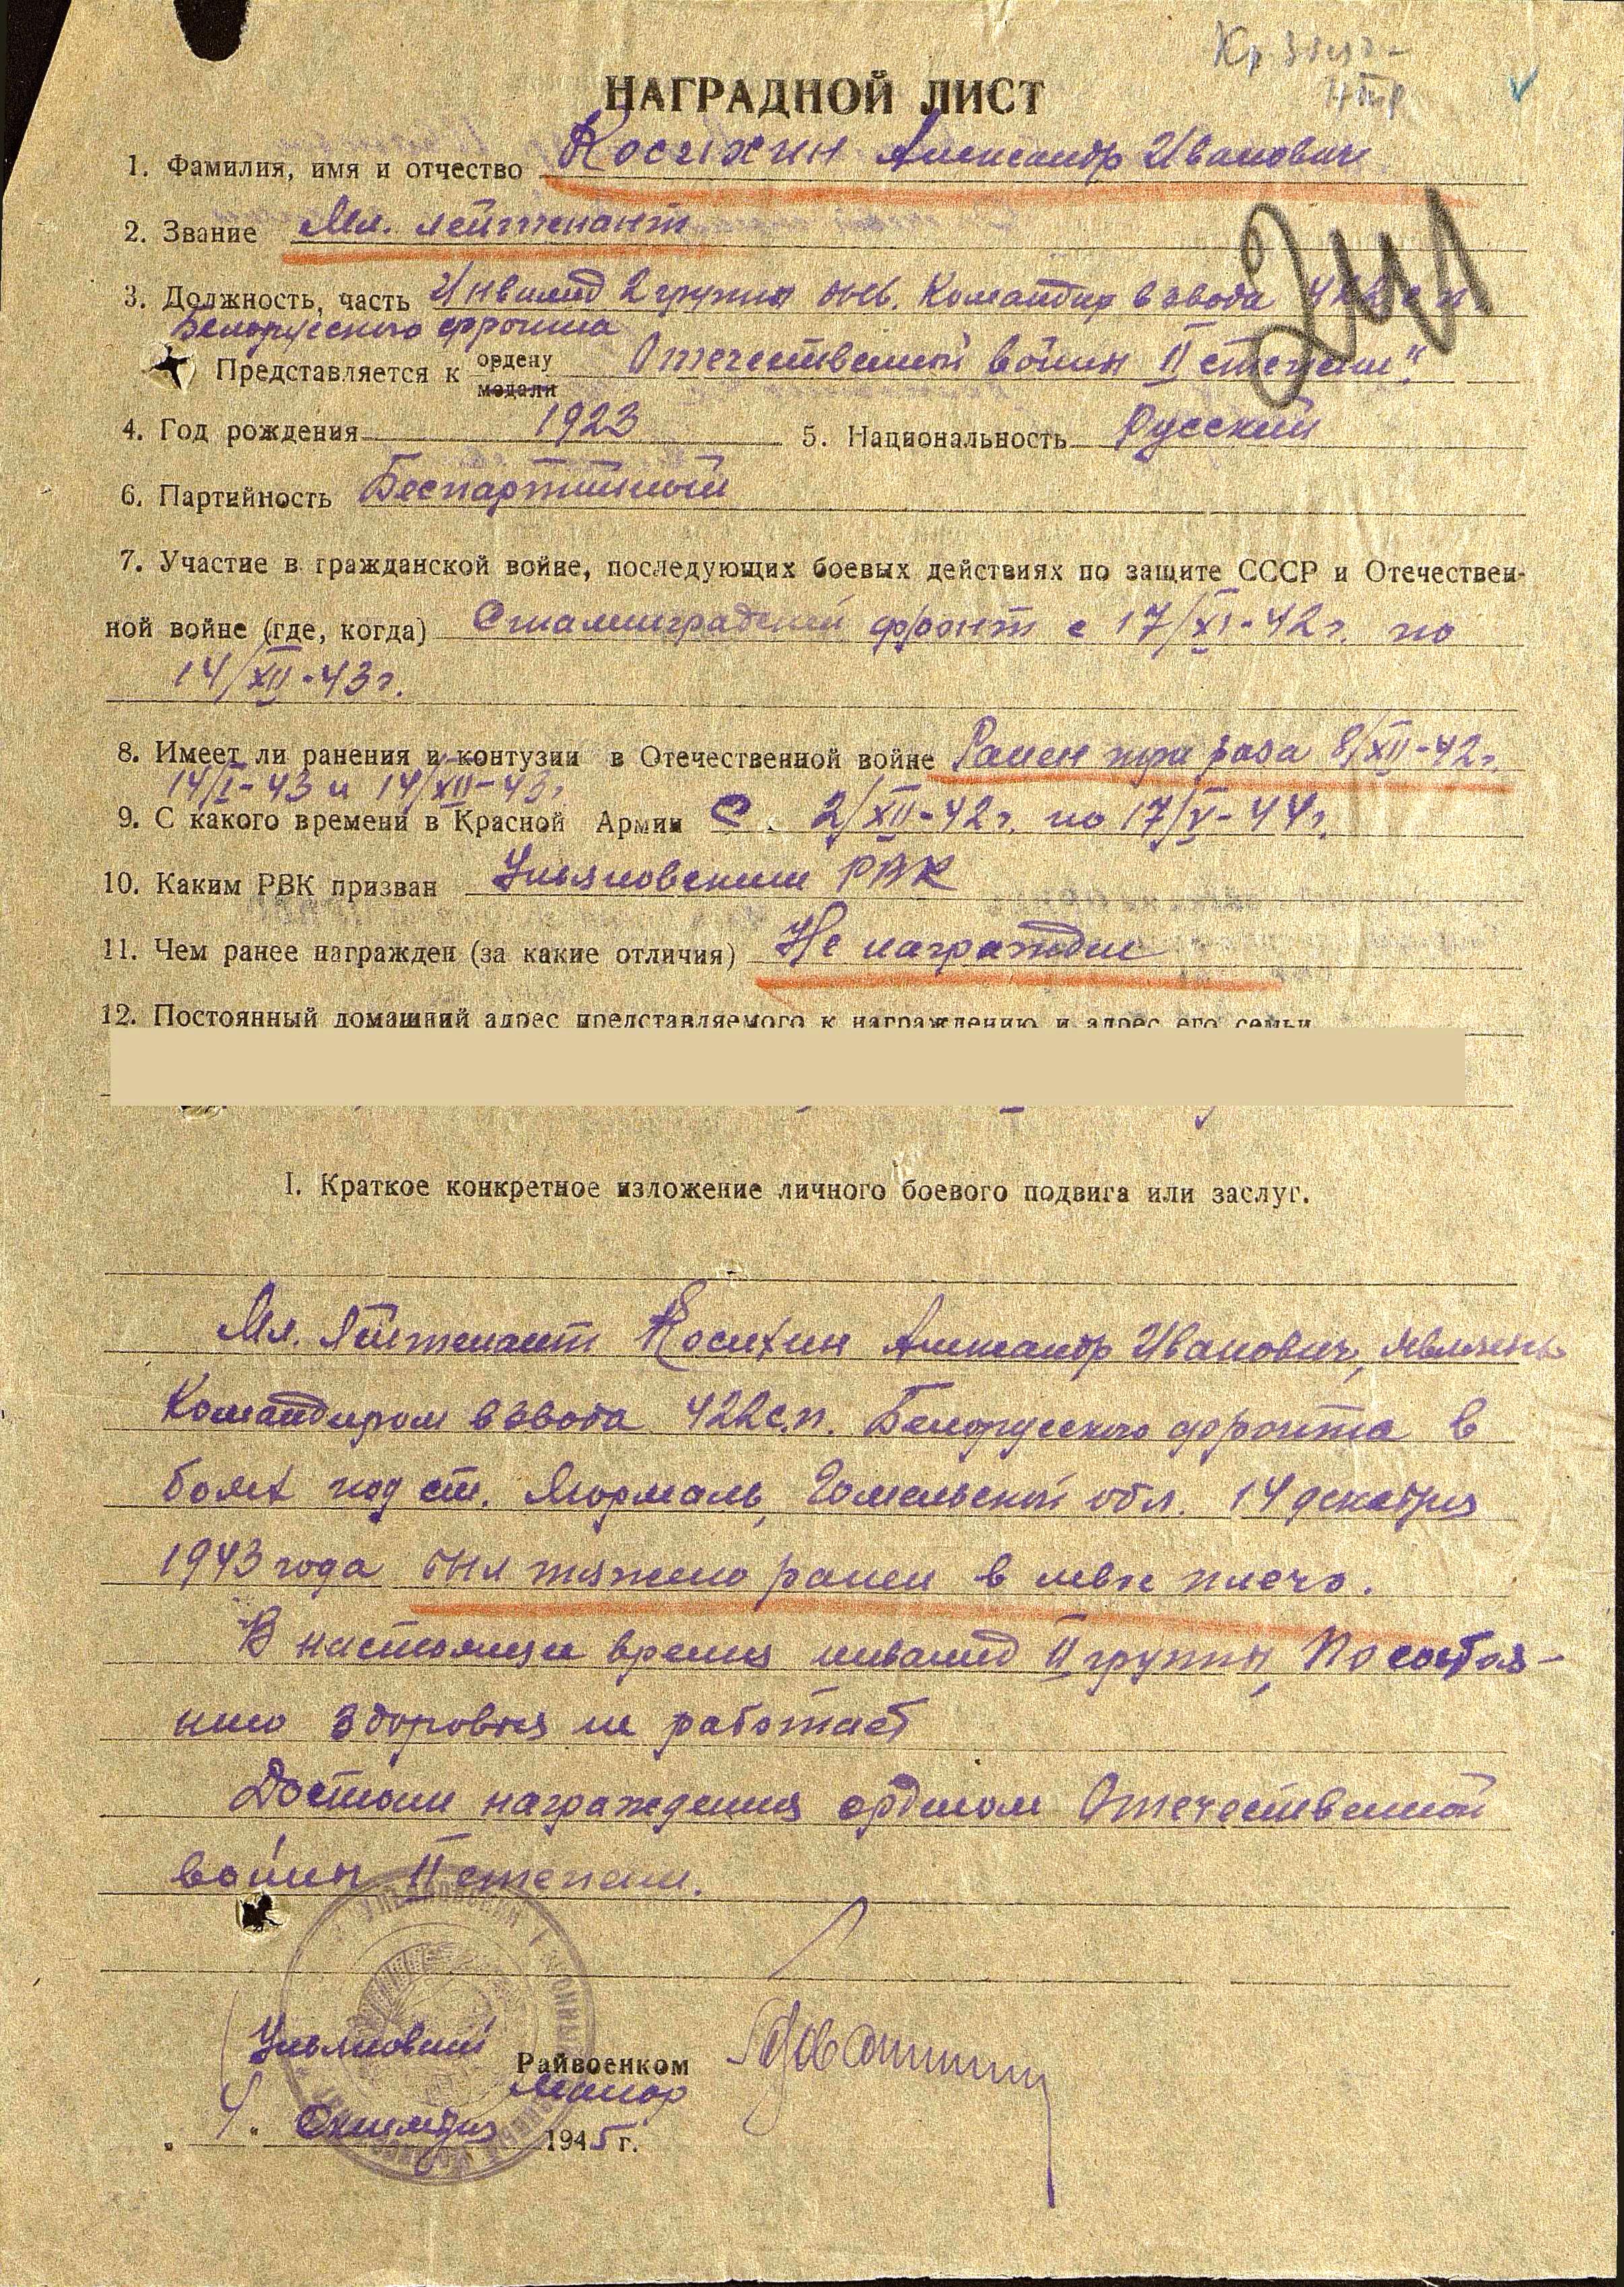 Кр. Звезд-
НАГРАДНОЙ ЛИСТ
1. Фамилия, имя и отчество Косихин Александр Иванович
2. Звание Мл. лейтенант
3. Должность, часть Инвалид 2 группы быв. Командир взвода 422 с п
Белорусского фронта
Представляется к ордену медали Отечественной войны II степени"
241
4. Год рождения 1923 5. Национальность Русский
6. Партийность Беспартийный
7. Участие в гражданской войне, последующих боевых действиях по защите СССР и Отечествен-
ной войне (где, когда) Сталинградский фронт с 17/XI-42г. по
14/XII-43г.
8. Имеет ли ранения и контузии в Отечественной войне Ранен три раза 8/XII-42г.
14/I-43 и 14/XII-43г
9. С какого времени в Красной Армии С 2/XII-42г. по 17/V-44г.
10. Каким РВК призван Ульяновским РВК
11. Чем ранее награжден (за какие отличия) Не награжден
12. Постоянный домашний адрес представляемого к награждению и адрес его семьи
I. Краткое конкретное изложение личного боевого подвига или заслуг.
Мл. Лейтенант Косихин Александр Иванович, являясь
Командиром взвода 422с.п. Белорусского фронта в
боях под ст. Гомельской обл. 14 декабря
1943 года был тяжело ранен в левое плечо.
В настоящее время инвалид II группы, По состоя-
нию здоровья не работает
Достоин награждения орденом Отечественной
войны II степени.
Ульяновский Райвоенком
Майор
„4" Октября 1945 г.